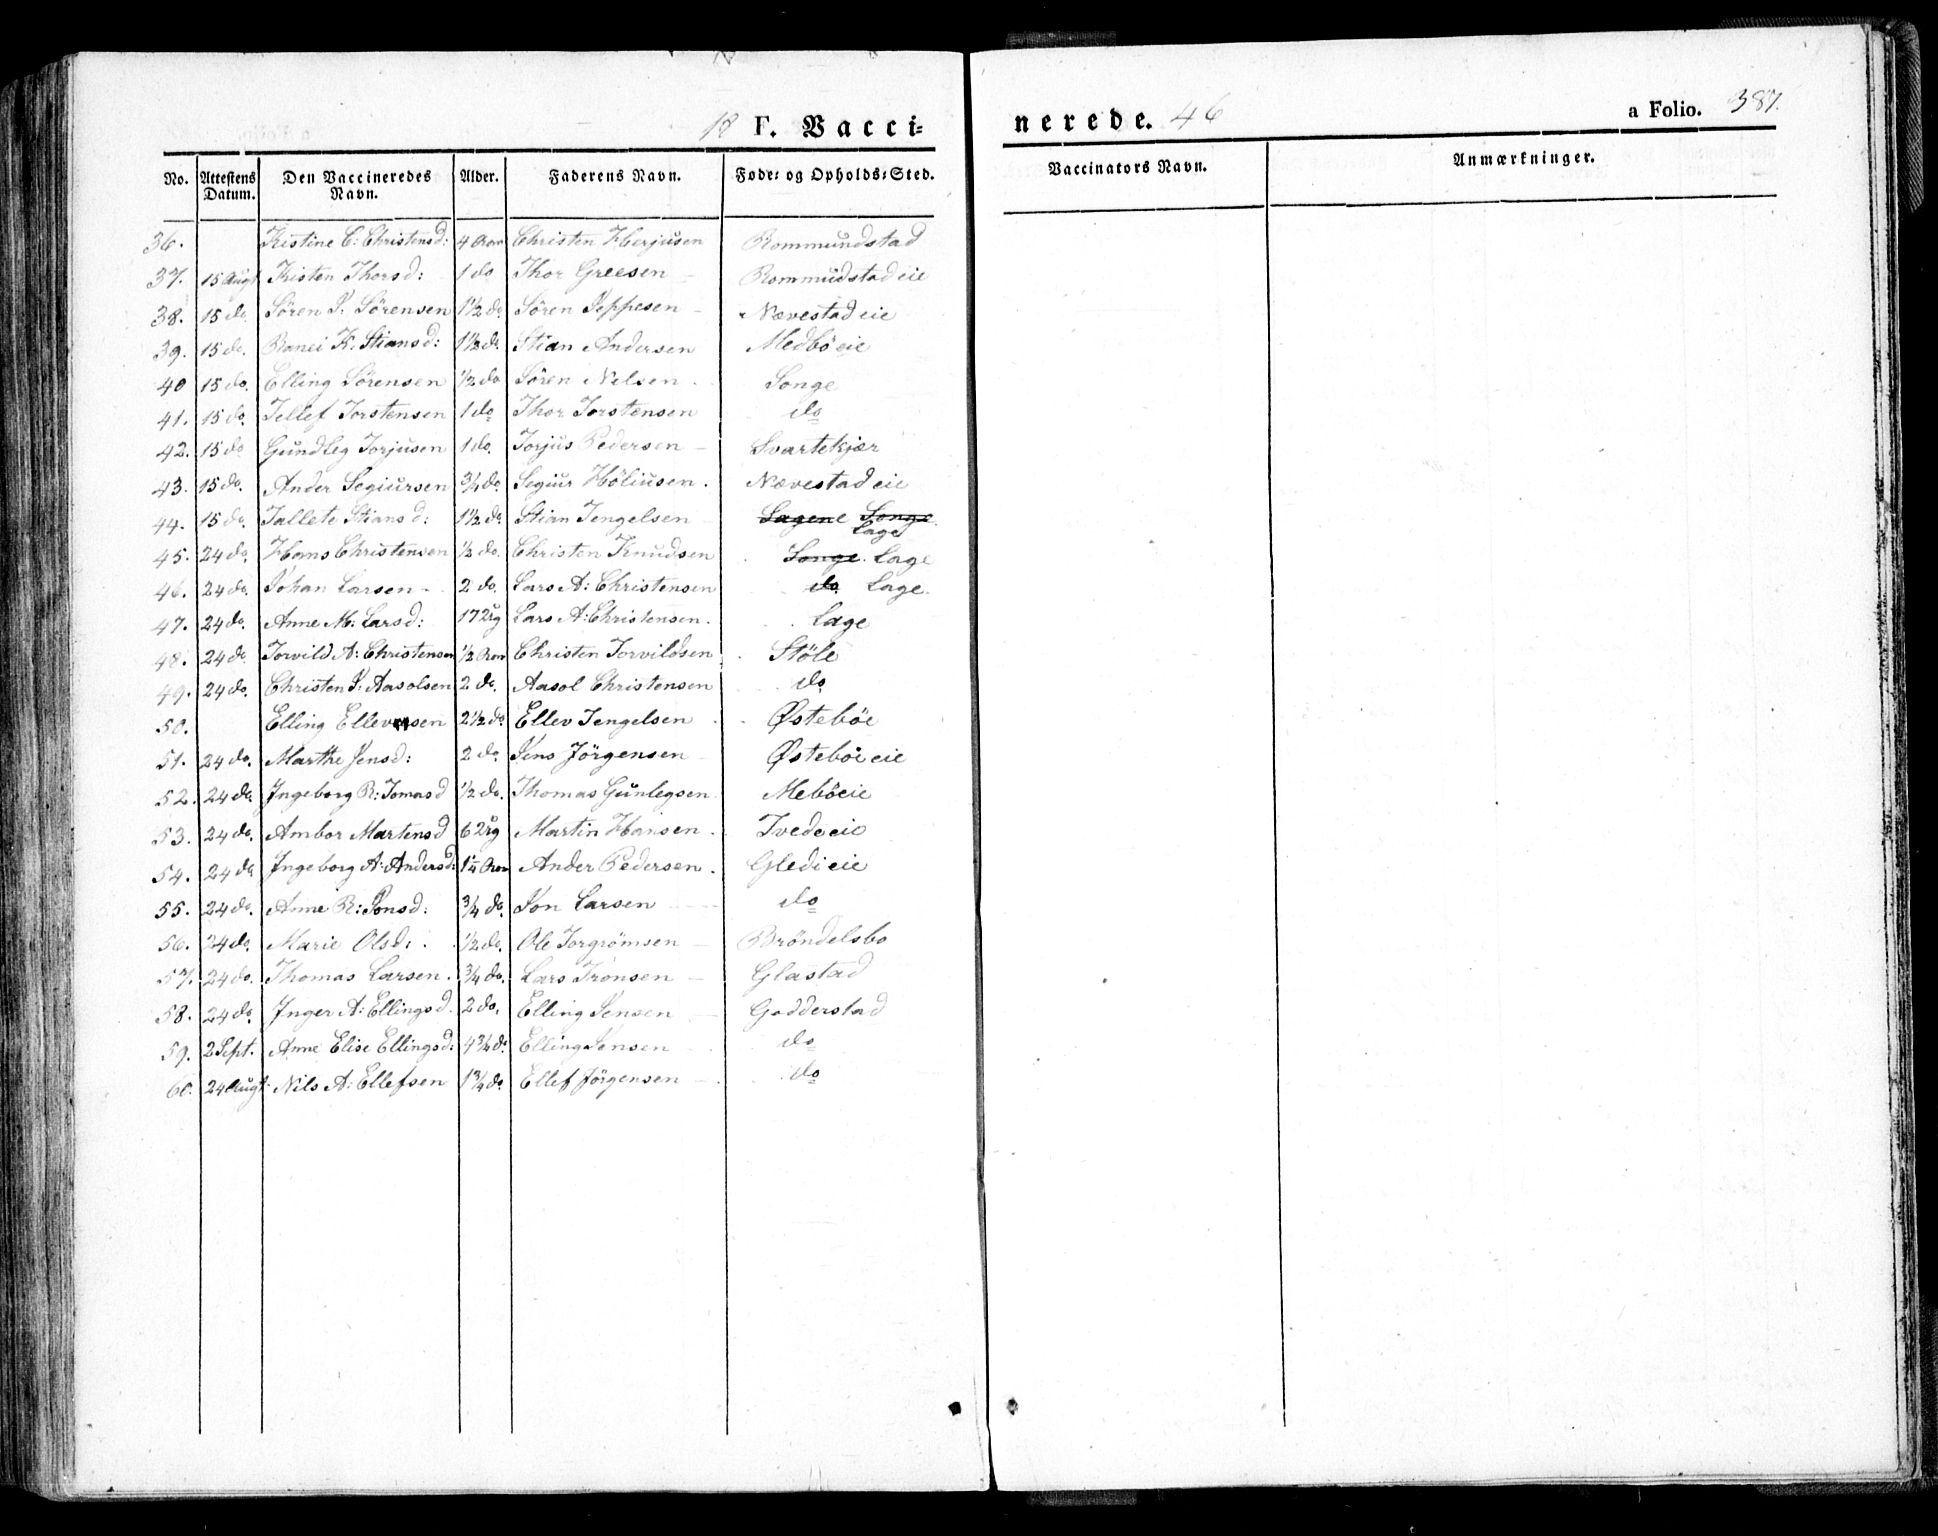 18 F. Vacci=
nerede. 46
a Folio. 387.
No. Attestens Datum. Den Vaccineredes Navn. Alder. Faderens Navn. Føde= og Opholds=Sted.
Vaccinators Navn. Anmærkninger.
36. Kistine C: Christensd: 4 Aar Christen Herjusen Rommundstad
37. 15 Augt Kisten Thorsd: 1 do Thor Greesen Rommudstadeie
38. 15 do. Sören J: Sörensen 1½ do Sören Jeppesen Nævestadeie
39. 15 do. Ranei K: Stiansd: 1½ do. Stian Andersen Medböeie
40 15 do. Elling Sörensen ½ do Sören Nelsen. Songe
41. 15 do. Tellef Torstensen 1 do Thor Torstensen do
42. 15 do Gundleg Torjusen 1 do. Torjus Pedersen Svartekjær
43. 15 do. Ander Segiursen ¾ do. Segiur Höliusen. Nævestadeie
44. 15 do. Tallete Stiansd: 1½ do. Stian Tengelsen Lagene Songe Lage
45. 24 do. Hans Christensen ½ do. Christen Knudsen Songe. Lage
46. 24 do. Johan Larsen 2 do. Lars A: Christensen do Lage.
47. 24 do. Anne M: Larsd: 17 Aar Lars A: Christensen. Lage
48. 24 do Torvild A: Christensen ½ Aar Christen Torvildsen Støle
49. 24 do. Christen J: Aasolsen 2 do. Aasol Christensen do
50. Elling Ellevsen 2½ do. Ellev Tengelsen Østebøe
51. 24 do. Marthe Jensd: 2 do. Jens Jörgensen Østebøeeie
52. 24 do. Ingeborg R: Tomasd ½ do. Thomas Gunlegsen Meböeie
53. 24 do. Ambor Martensd 6 Martin Hansen. Tvedeeie
54. 24 do Ingeborg A: Andersd: 1¼ Aar Ander Pedersen. Gledieie
55. 24 do. Anne R: Jonsd: ¾ do. Jon Larsen do
56. 24 do. Marie Olsd: ½ do. Ole Torgrömsen Bröndelsbo
57. 24 do. Thomas Larsen. ¾ do. Lars Tronsen Glastad
58. 24 do. Inger A: Ellingsd. 2 do. Elling Jensen Godderstad
59. 2 Sept. Anne Elise Ellingsd: 4¾ do. Elling Jensen do
60. 24 Augt. Nils A: Ellefsen 1¾ do. Ellef Jörgensen do